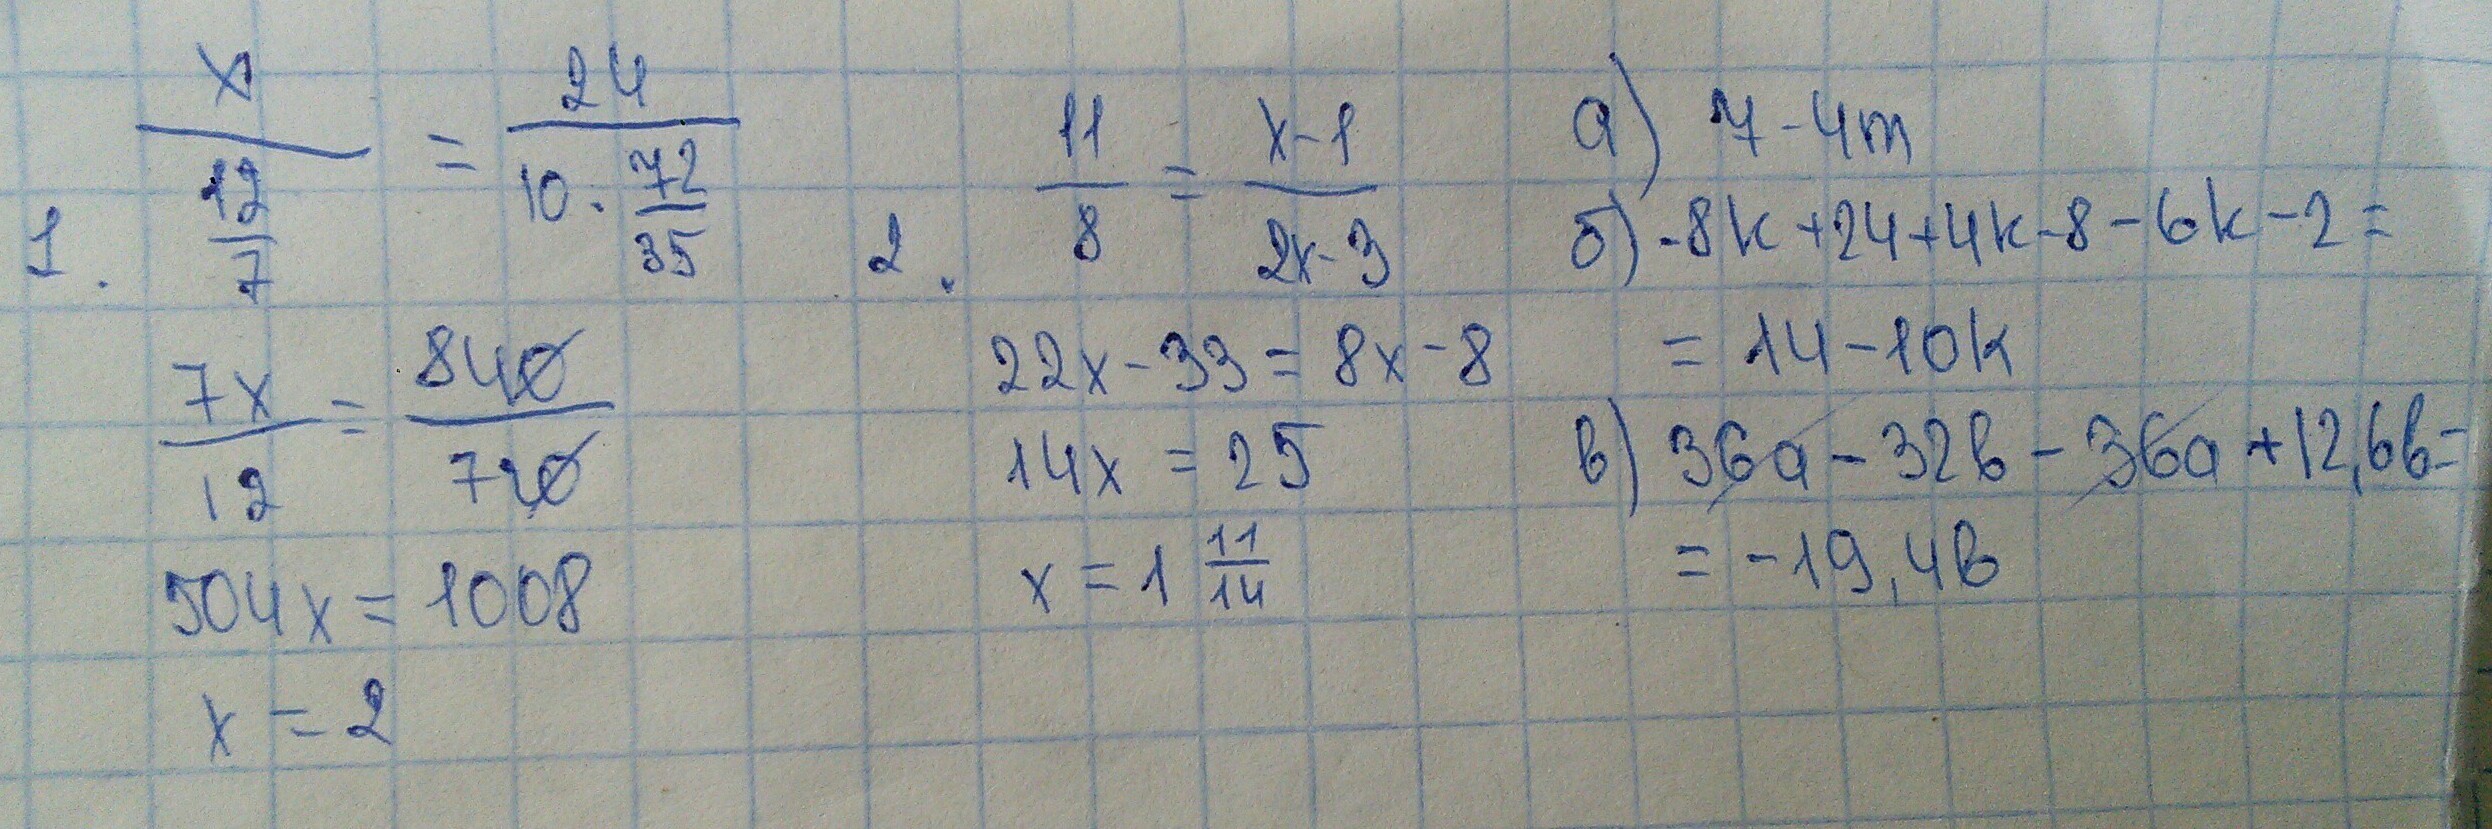 1. x / (12/7) = 24 / (10 · 72/35)
7x/12 = 840/720
504x = 1008
x = 2
2. 11/8 = (x-1)/(2x-3)
22x - 33 = 8x - 8
14x = 25
x = 1 11/14
а) 7 - 4m
б) -8k + 24 + 4k - 8 - 6k - 2 =
= 14 - 10k
в) 36a - 32b - 36a + 12,6b =
= -19,4b